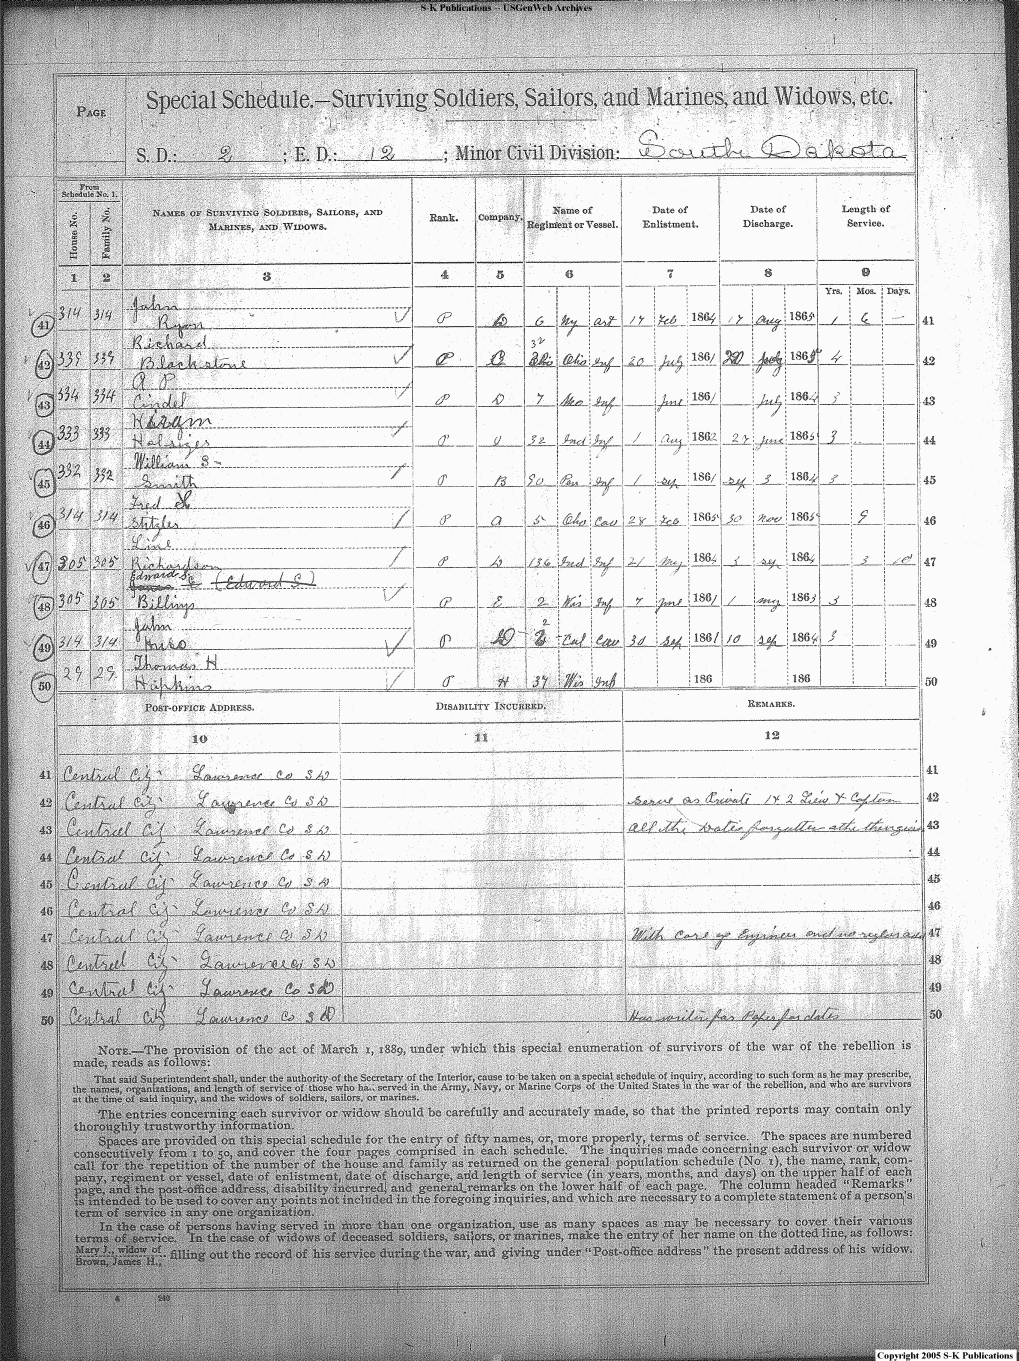 S-K Publications -- USGenWeb Archives
PAGE
Special Schedule.—Surviving Soldiers, Sailors, and Marines, and Widows, etc.
S. D.: 2 ; E. D.: 12 ; Minor Civil Division: South Dakota
From Schedule No. 1.
House No. Family No. NAMES OF SURVIVING SOLDIERS, SAILORS, AND MARINES, AND WIDOWS. Rank. Company. Name of Regiment or Vessel. Date of Enlistment. Date of Discharge. Length of Service.
1 2 3 4 5 6 7 8 9
Yrs. Mos. Days.
John
41 314 314 Ryan P D 6 Ny art 17 Feb 1864 17 Aug 1865 1 6 — 41
Richard
42 339 339 Blackstone P C 32 Ohio Inf 20 July 1861 20 July 1865 4 42
A P
43 334 334 Cindel P D 7 Mo Inf June 1861 July 1864 3 43
Hiram
44 333 333 Halsizer P 32 Ind Inf 1 Aug 1862 27 June 1865 3 .. 44
William S-
45 332 332 Smith P B 90 Pen Inf 1 Sep 1861 Sep 3 1864 3 45
Fred
46 314 314 Stitzler P A 5 Oho Cav 28 Feb 1865 30 Nov 1865 9 46
Line
47 305 305 Richardson P D 136 Ind Inf 21 May 1864 3 Sep 1864 3 10 47
Edward S. (Edward S.)
48 305 305 Billings P E 2 Wis Inf 7 June 1861 1 May 1863 3 48
John
49 314 314 P D 2 Cal Cav 30 Sep 1861 10 Sep 1864 3 49
Thomas H
50 29 29 Hopkins P H 37 Wis Inf 186 186 50
POST-OFFICE ADDRESS. DISABILITY INCURRED. REMARKS.
10 11 12
41 Central City Lawrence Co S D 41
42 Central City Lawrence Co S D Serve as Private 1 & 2 Lieu & Captain 42
43 Central City Lawrence Co S D All the Dates forgotten 43
44 Central City Lawrence Co S D 44
45 Central City Lawrence Co S D 45
46 Central City Lawrence Co S D 46
47 Central City Lawrence Co S D With Care of Engineer and no 47
48 Central City Lawrence Co S D 48
49 Central City Lawrence Co S D 49
50 Central City Lawrence Co S D Has writen for Paper for dates 50
NOTE.—The provision of the act of March 1, 1889, under which this special enumeration of survivors of the war of the rebellion is
made, reads as follows:
That said Superintendent shall, under the authority of the Secretary of the Interior, cause to be taken on a special schedule of inquiry, according to such form as he may prescribe,
the names, organizations, and length of service of those who ha.. served in the Army, Navy, or Marine Corps of the United States in the war of the rebellion, and who are survivors
at the time of said inquiry, and the widows of soldiers, sailors, or marines.
The entries concerning each survivor or widow should be carefully and accurately made, so that the printed reports may contain only
thoroughly trustworthy information.
Spaces are provided on this special schedule for the entry of fifty names, or, more properly, terms of service. The spaces are numbered
consecutively from 1 to 50, and cover the four pages comprised in each schedule. The inquiries made concerning each survivor or widow
call for the repetition of the number of the house and family as returned on the general population schedule (No. 1), the name, rank, com-
pany, regiment or vessel, date of enlistment, date of discharge, and length of service (in years, months, and days) on the upper half of each
page, and the post-office address, disability incurred, and general remarks on the lower half of each page. The column headed "Remarks"
is intended to be used to cover any points not included in the foregoing inquiries, and which are necessary to a complete statement of a person's
term of service in any one organization.
In the case of persons having served in more than one organization, use as many spaces as may be necessary to cover their various
terms of service. In the case of widows of deceased soldiers, sailors, or marines, make the entry of her name on the dotted line, as follows:
Mary J., widow of
Brown, James H., filling out the record of his service during the war, and giving under "Post-office address" the present address of his widow.
Copyright 2005 S-K Publications